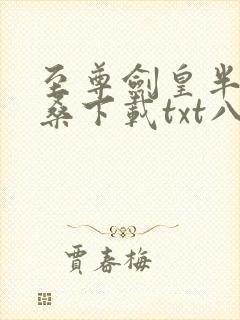 至尊劍皇半
桑下載txt八
賈春梅